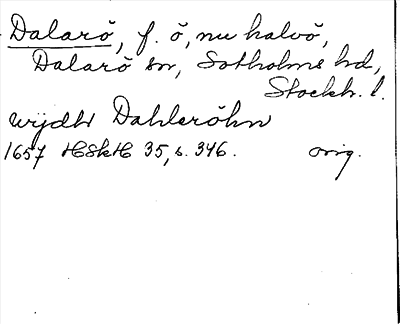 Dalarö, f. ö, nu halvö,
Dalarö sn, Sotholms hd,
Stockh. l.
wijdh Dahleröhn
1657 HSkH 35, s. 346. orig.